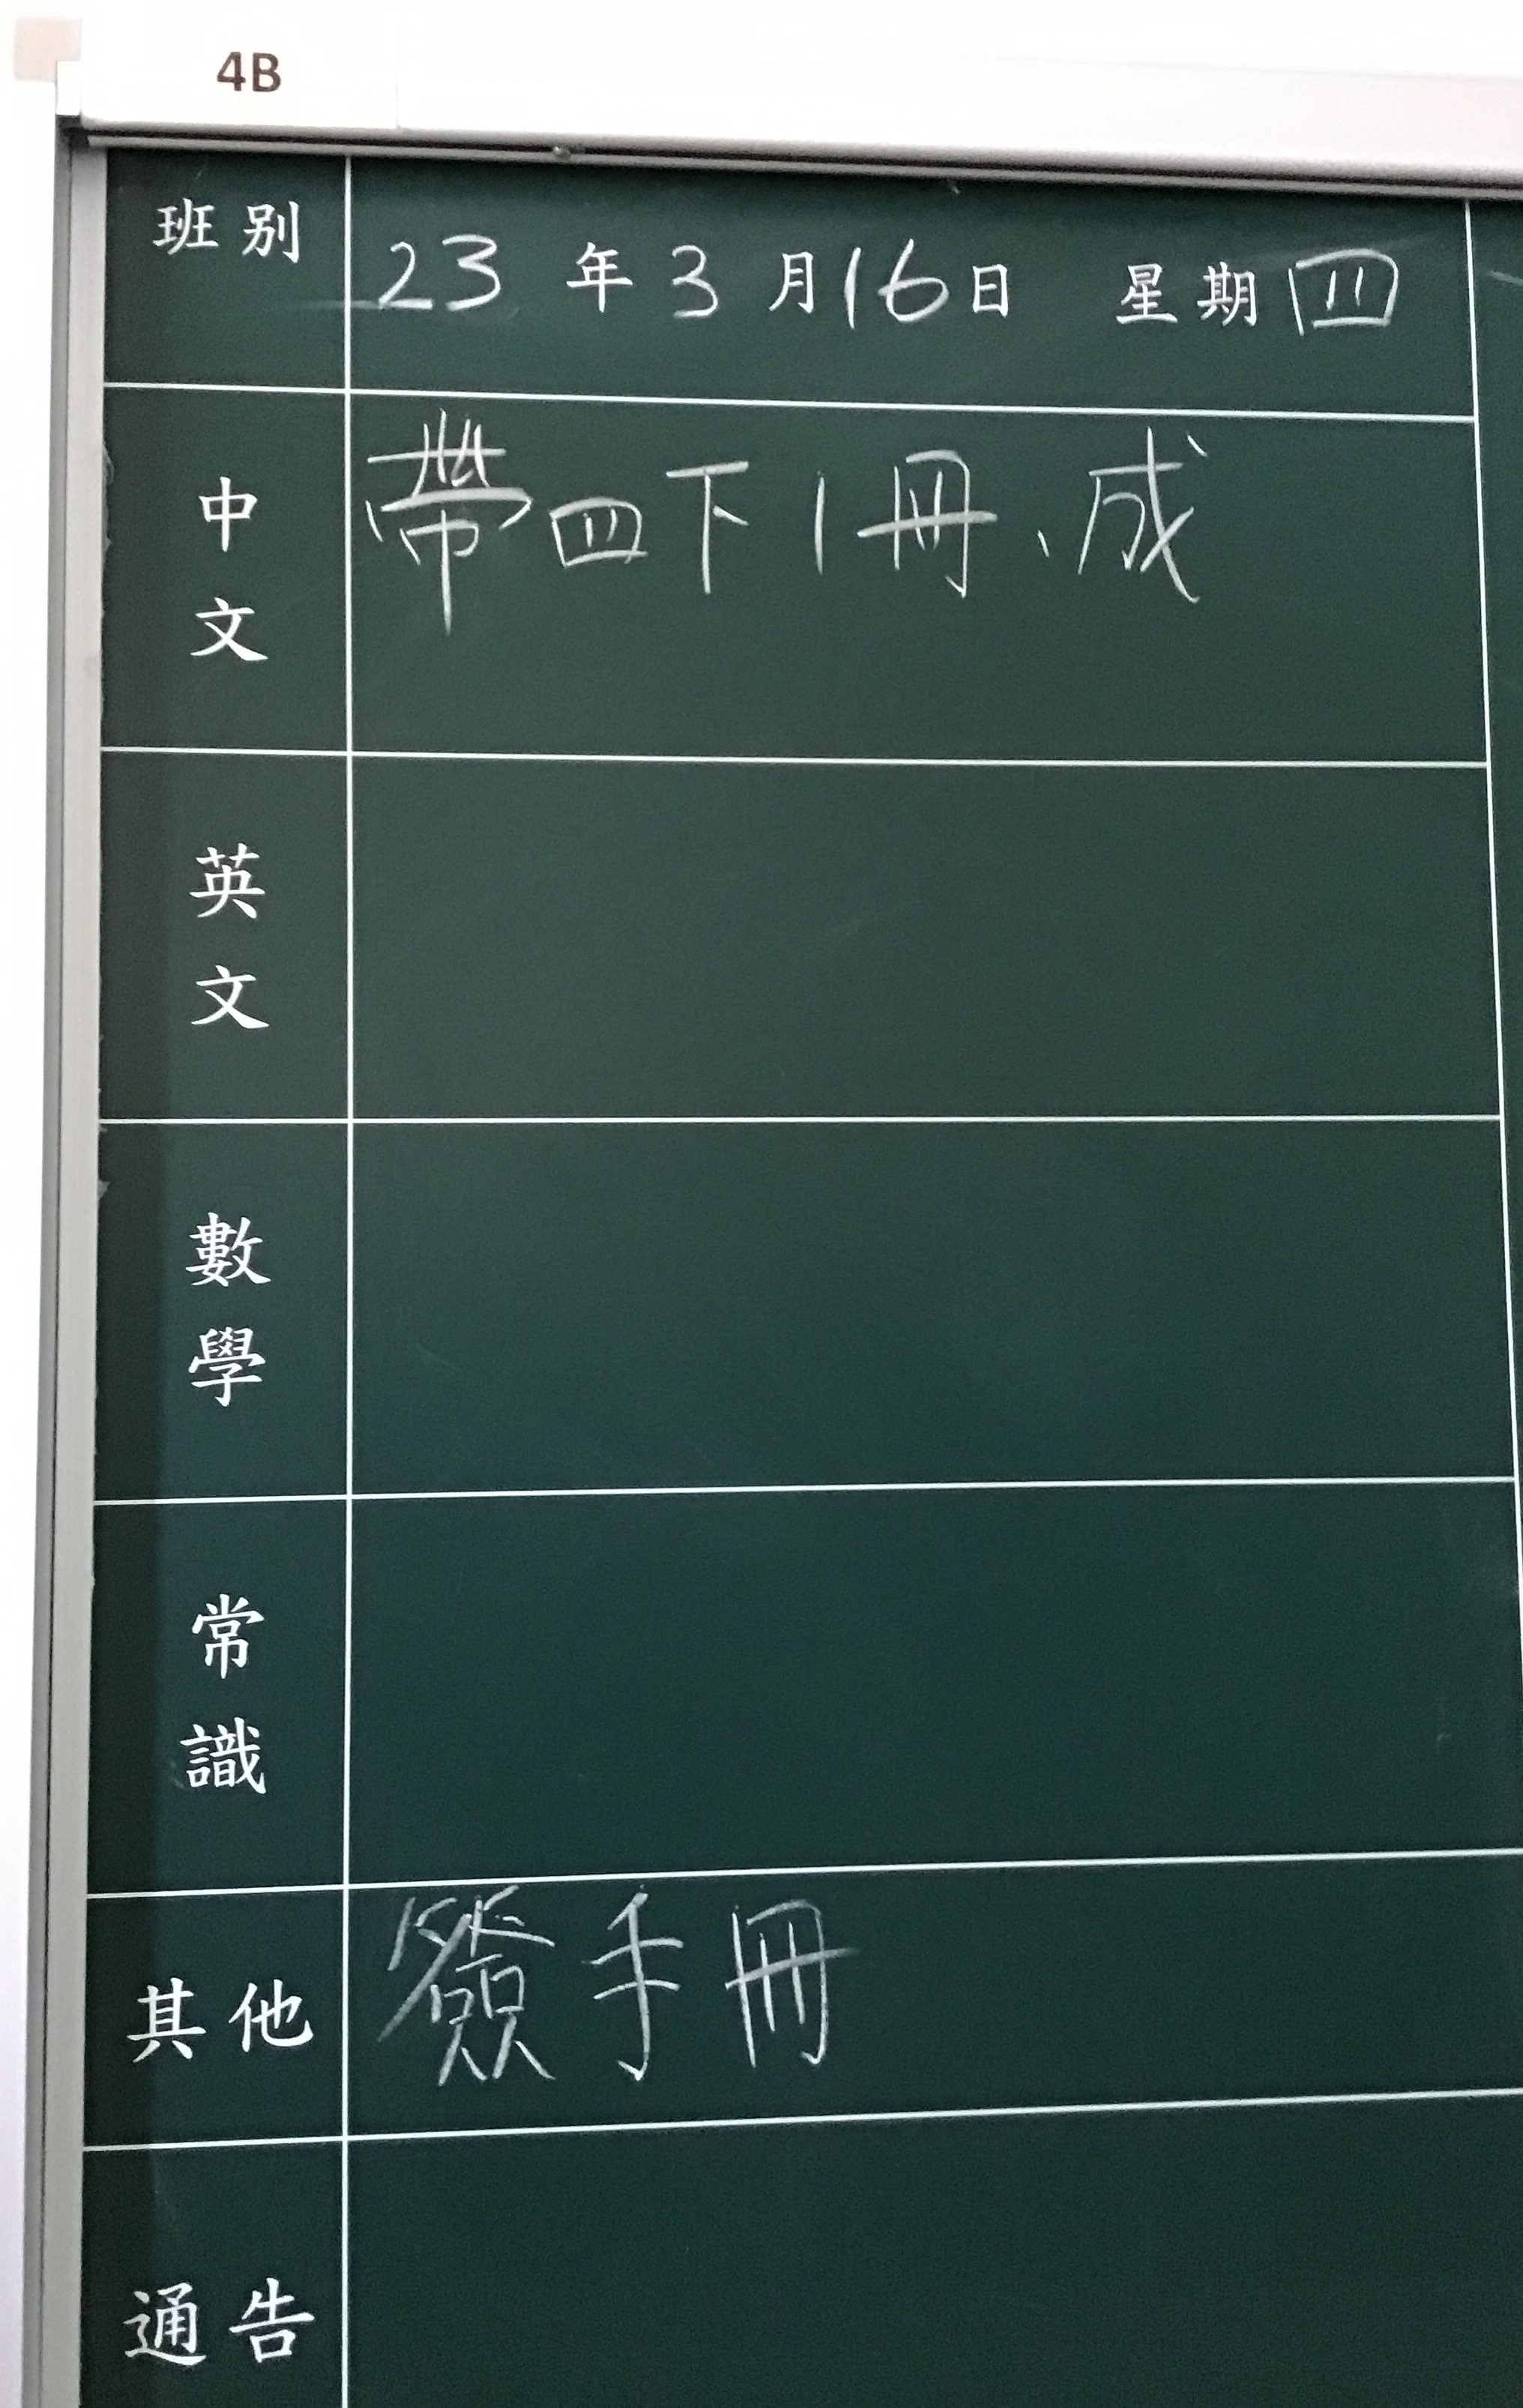 4B
班別 23年3月16日 星期四
中文 帶四下1冊、成
英文
數學
常識
其他 簽手冊
通告